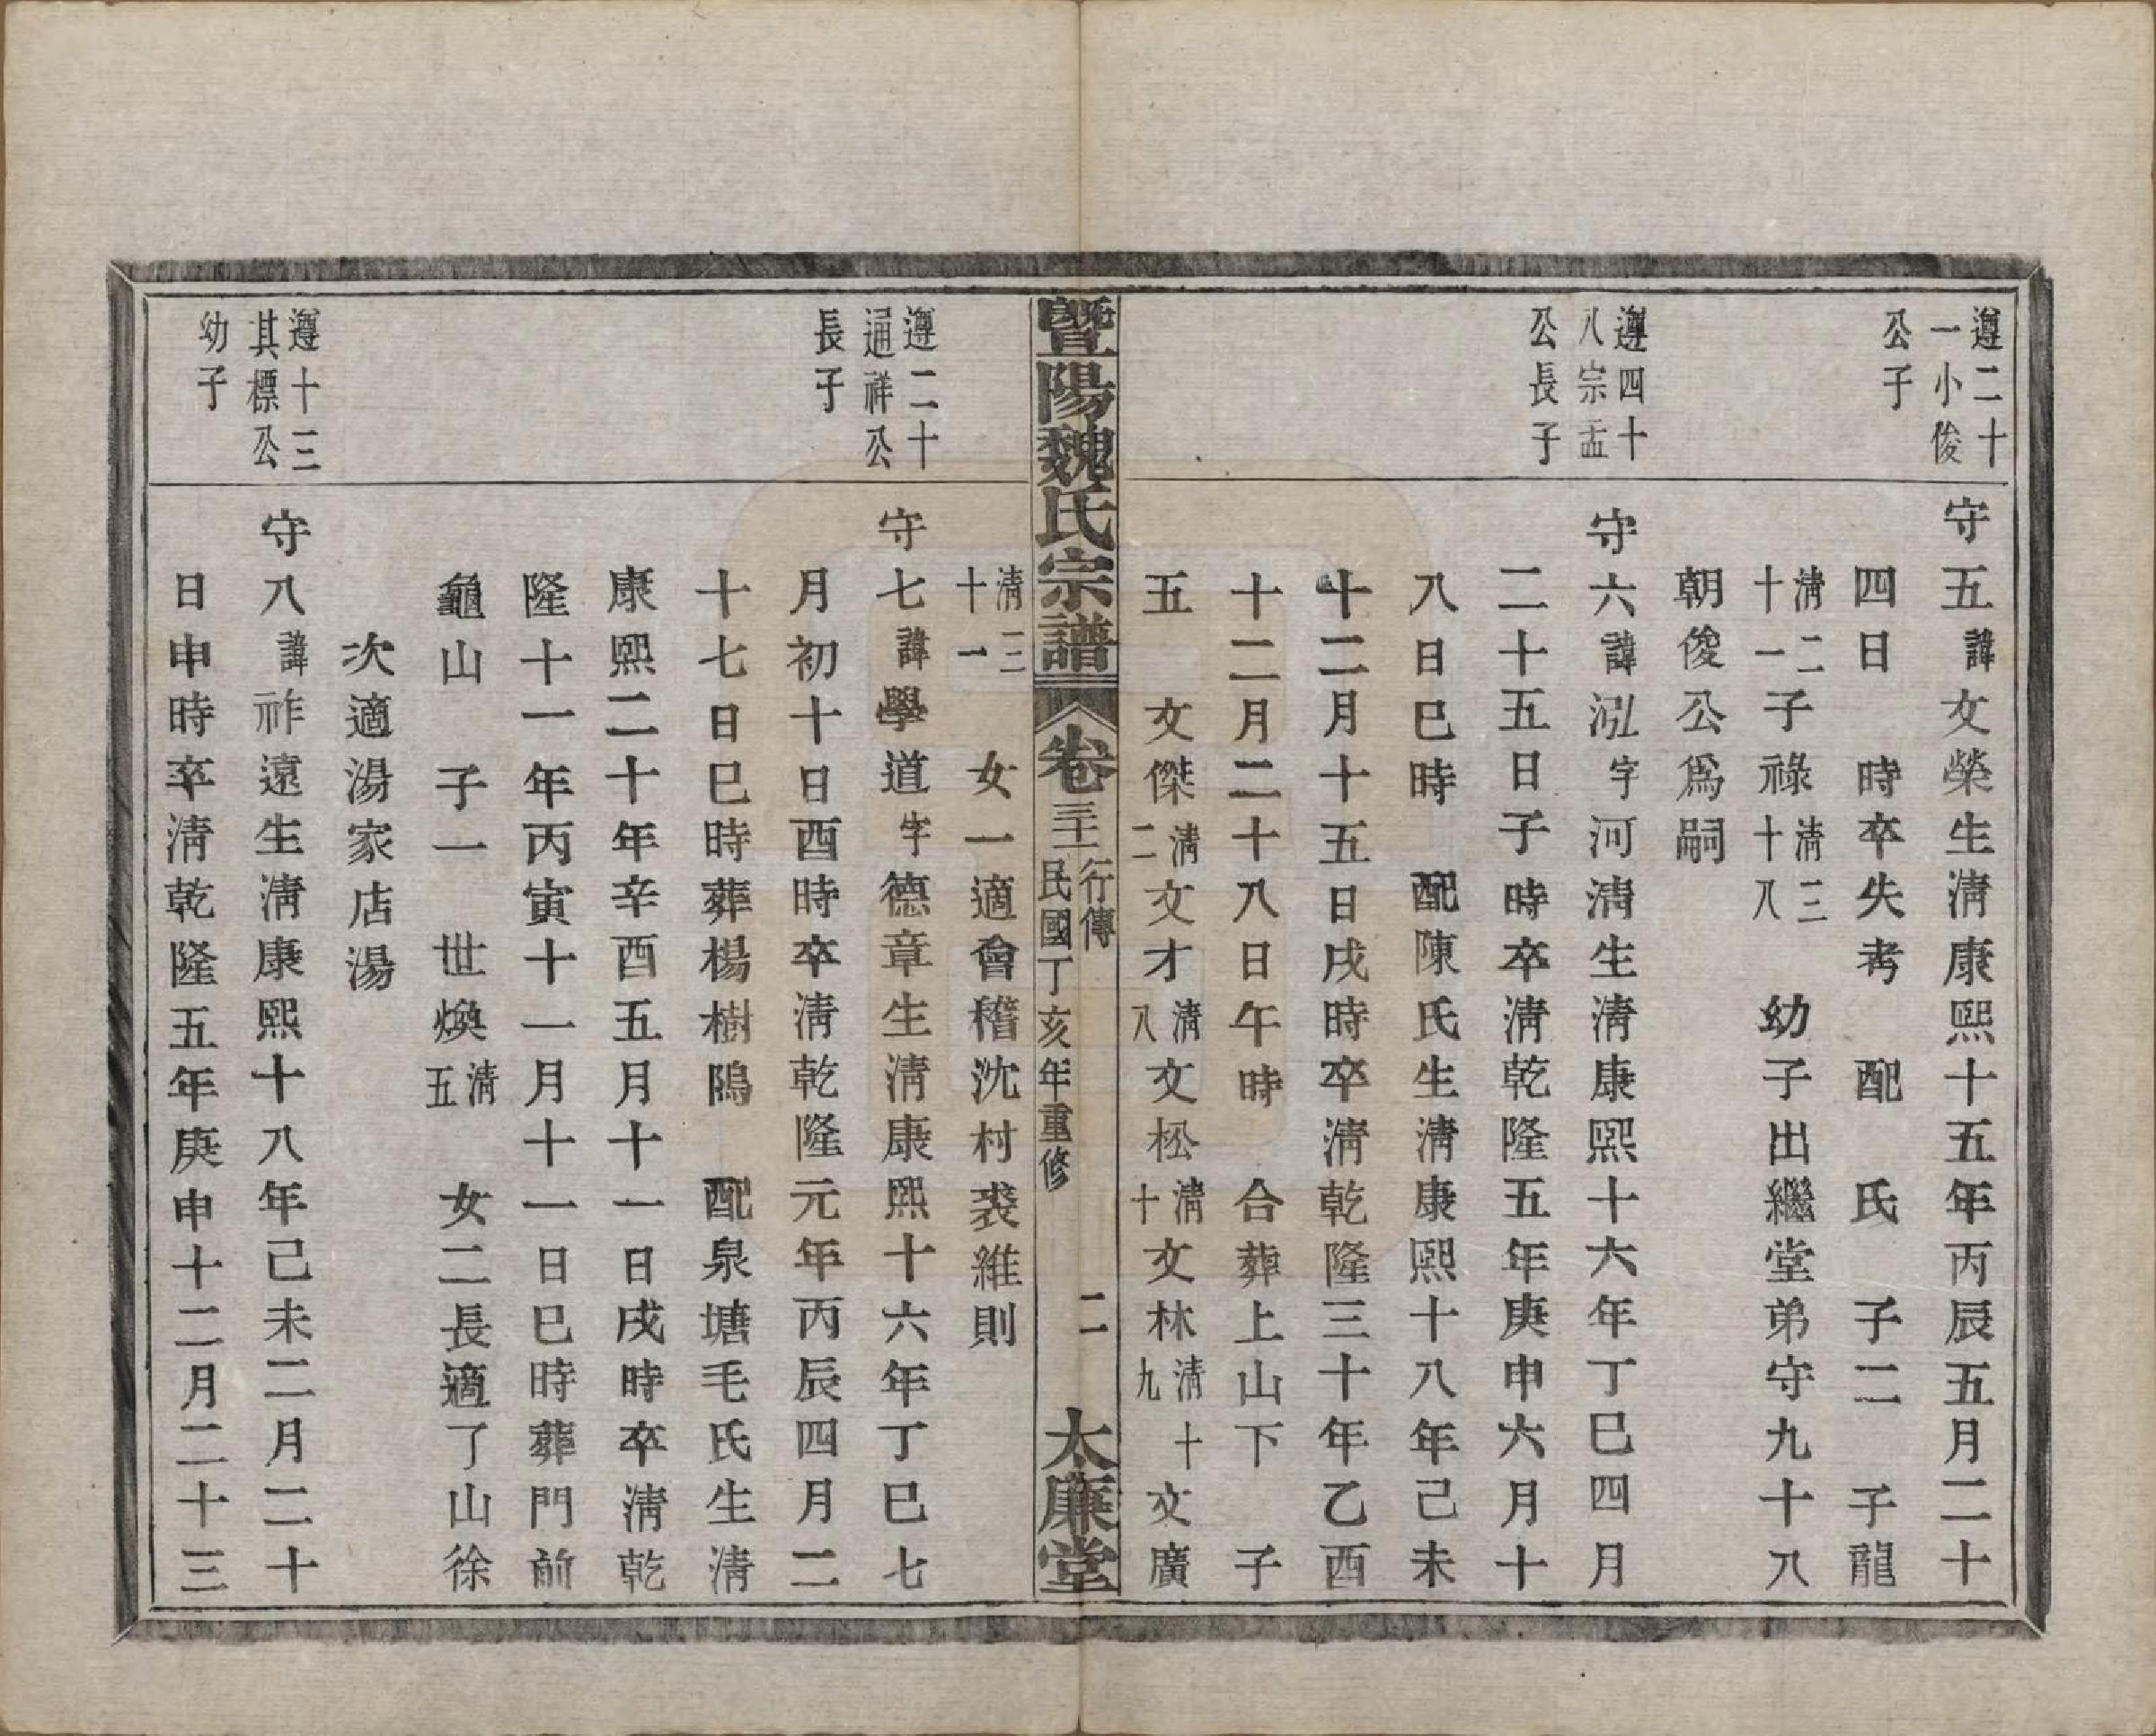 遵二十
一小俊
公子
守五諱文榮生淸康熙十五年丙辰五月二十
四日　時卒失考　配　氏　子二　子龍
淸二十一子祿淸三十八　幼子出繼堂弟守九十八
朝俊公爲嗣
遵四十
八宗盂
公長子
守六諱泓字河淸生淸康熙十六年丁巳四月
二十五日子時卒淸乾隆五年庚申六月十
八日巳時　配陳氏生淸康熙十八年己未
十二月十五日戌時卒淸乾隆三十年乙酉
十二月二十八日午時　合葬上山下　子
五　文傑淸二文才淸八文松淸十文林淸十九文廣
暨陽魏氏宗譜　卷三十一　行傳　民國丁亥年重修　二　太廉堂
淸三十一　女一適會稽沈村裘維則
遵二十
通祥公
長子
守七諱學道字德章生淸康熙十六年丁巳七
月初十日酉時卒淸乾隆元年丙辰四月二
十七日巳時葬楊樹隖　配泉塘毛氏生淸
康熙二十年辛酉五月十一日戌時卒淸乾
隆十一年丙寅十一月十一日巳時葬門前
龜山　子一　世煥淸五　女二長適了山徐
次適湯家店湯
遵十三
其標公
幼子
守八諱祚遠生淸康熙十八年己未二月二十
日申時卒淸乾隆五年庚申十二月二十三